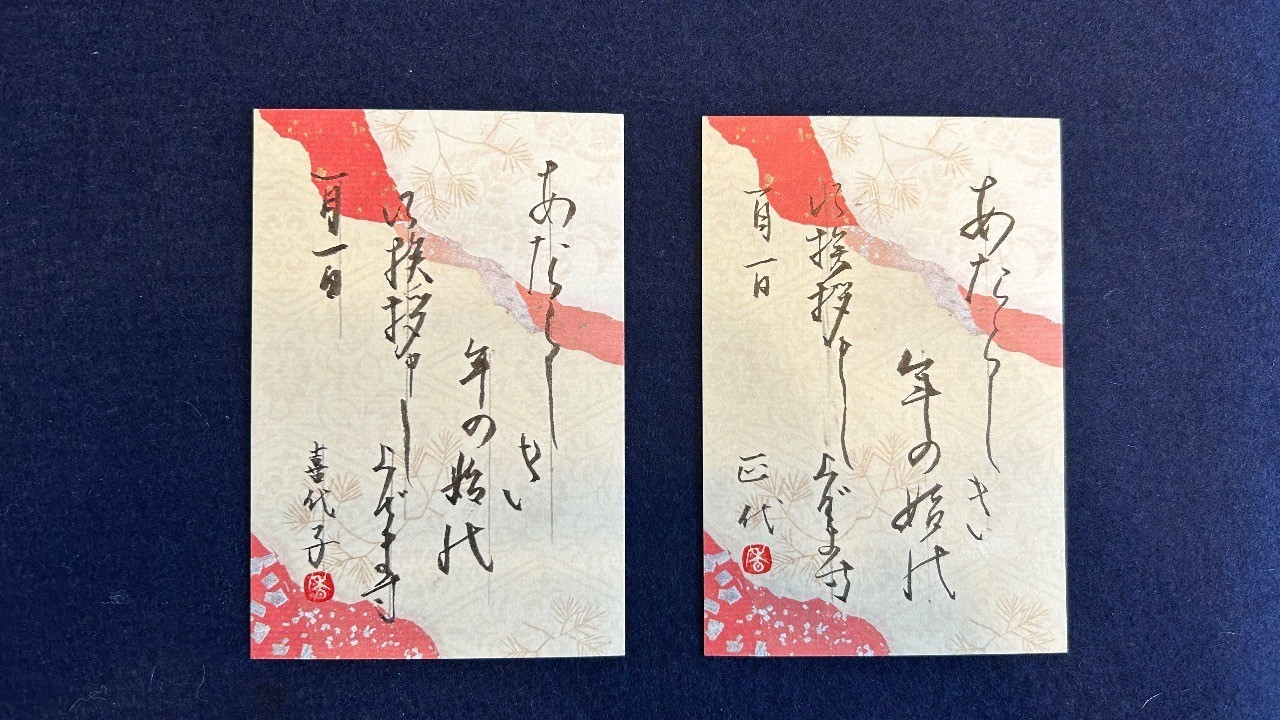 あたらしき
年の始の
御挨拶申し上げます
一月一日
正代
あたらしき
年の始の
御挨拶申し上げます
一月一日
喜代子